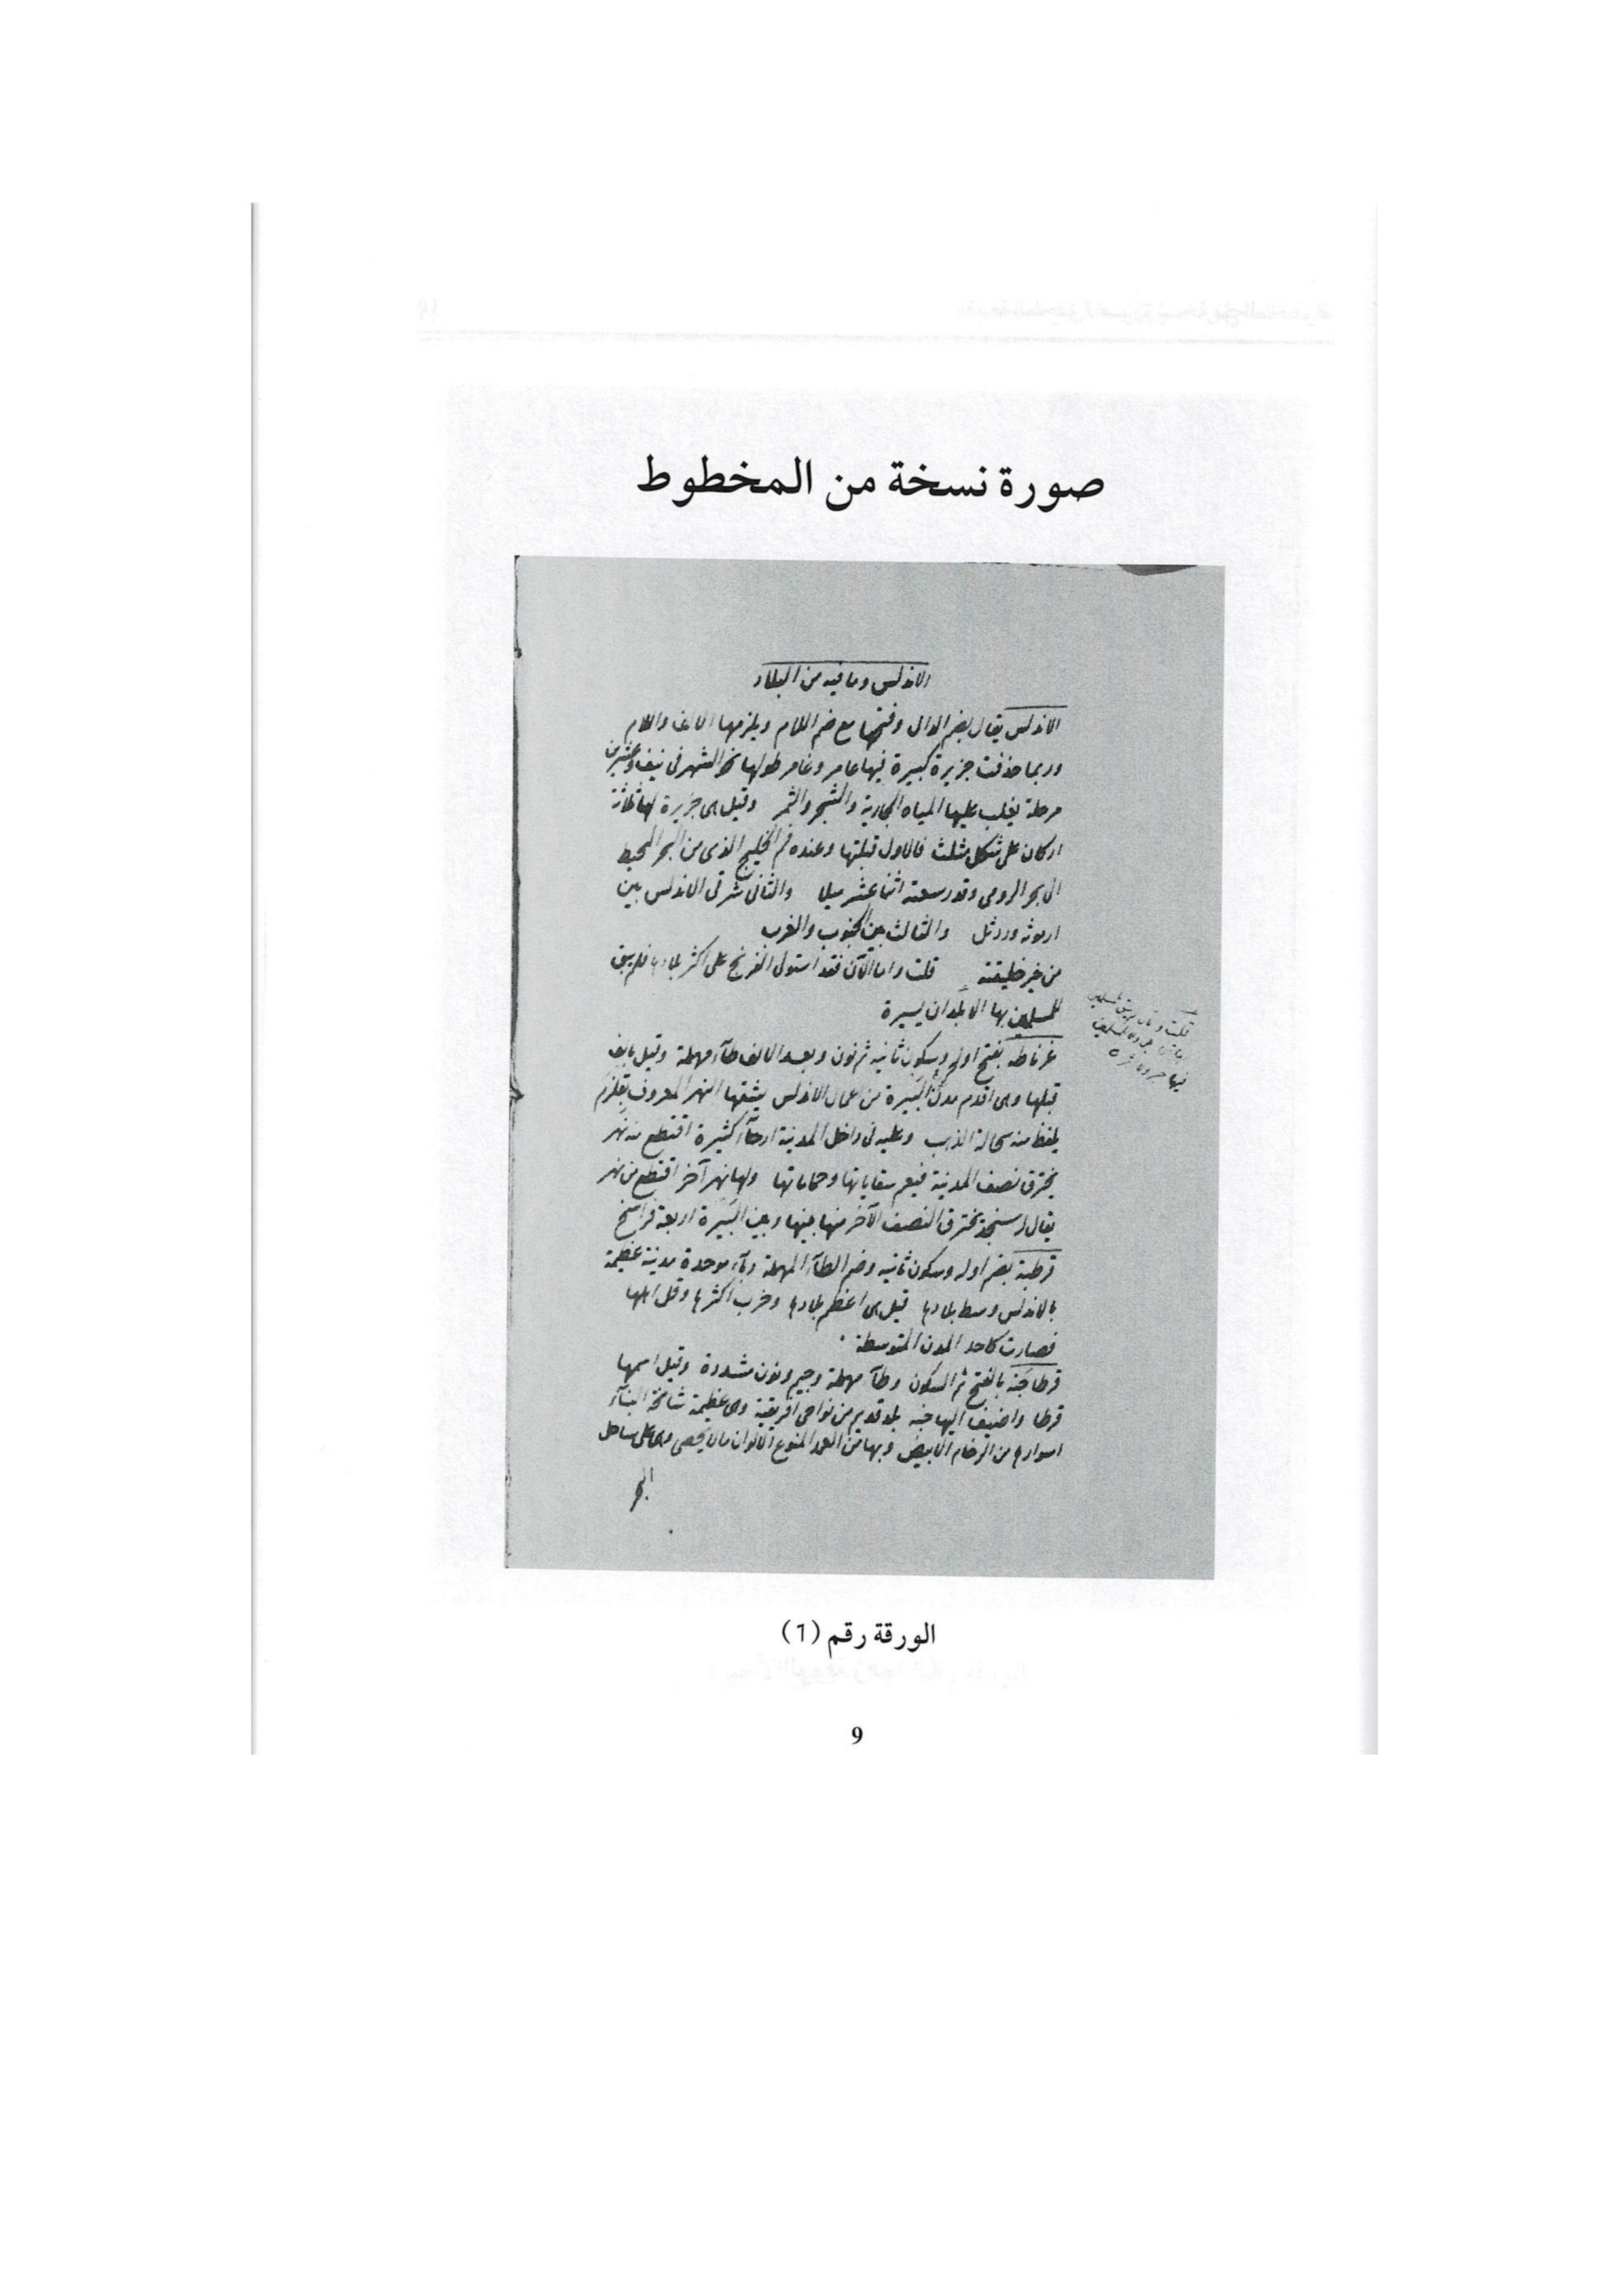 صورة نسخة من المخطوط
الاندلس وما فيه من البلاد
الاندلس يقال بضم الدال وفتحها مع ضم اللام ويلزمها الالف واللام
وربما حذفت جزيرة كبيرة فيها عامر وغامر طولها نحو الشهر فى نيف وعشرين
مرحلة يغلب عليها المياه الجارية والشجر والثمر وقيل هى جزيرة لها ثلاثة
اركان على شكل مثلث فالاول قبلتها وعنده فم الخليج الذى من البحر المحيط
الى بحر الرومى وقدر سعته اثنا عشر ميلا والثانى شرقى الاندلس بين
اربونه وردتل والثالث بين الجنوب والغرب
من خبر خليقته قلت واما الآن فقد استولى الفرنج على اكثر بلادها فلم يبق
للمسلمين بها الا بلدان يسيرة
غرناطه بفتح اوله وسكون ثانيه ثم نون وبعد الالف طآء مهملة وقيل بالف
قبلها وهى اقدم مدن البيرة من اعمال الاندلس يشقها النهر المعروف بقلزم
يلفظ منه سحالة الذهب وعليه فى داخل المدينة ارحآء كثيرة اقتطع منه نهر
يخترق نصف المدينة فيعم سقاياتها وحماماتها ولها نهر آخر اقتطع من نهر
يقال له سنجد يخترق النصف الآخر منها بينها وبين البيرة اربعة فراسخ
قرطبة بضم اوله وسكون ثانيه وضم الطآء المهملة وبآء موحدة مدينة عظيمة
بالاندلس وسط بلادها قيل هى اعظم بلادها وخرب اكثرها وقل اهلها
فصارت كاحد المدن المتوسطة
قرطاجنه بالفتح ثم السكون وطآء مهملة وجيم ونون مشددة وقيل اسمها
قرطا واضيف اليها جنه بلد قديم من نواحى افريقية وهى عظيمة شامخة البنآء
اسوارها من الرخام الابيض وبها من العمد المنوع الالوان ما لا يحصى وهى على ساحل
البحر
الورقة رقم (٦)
9